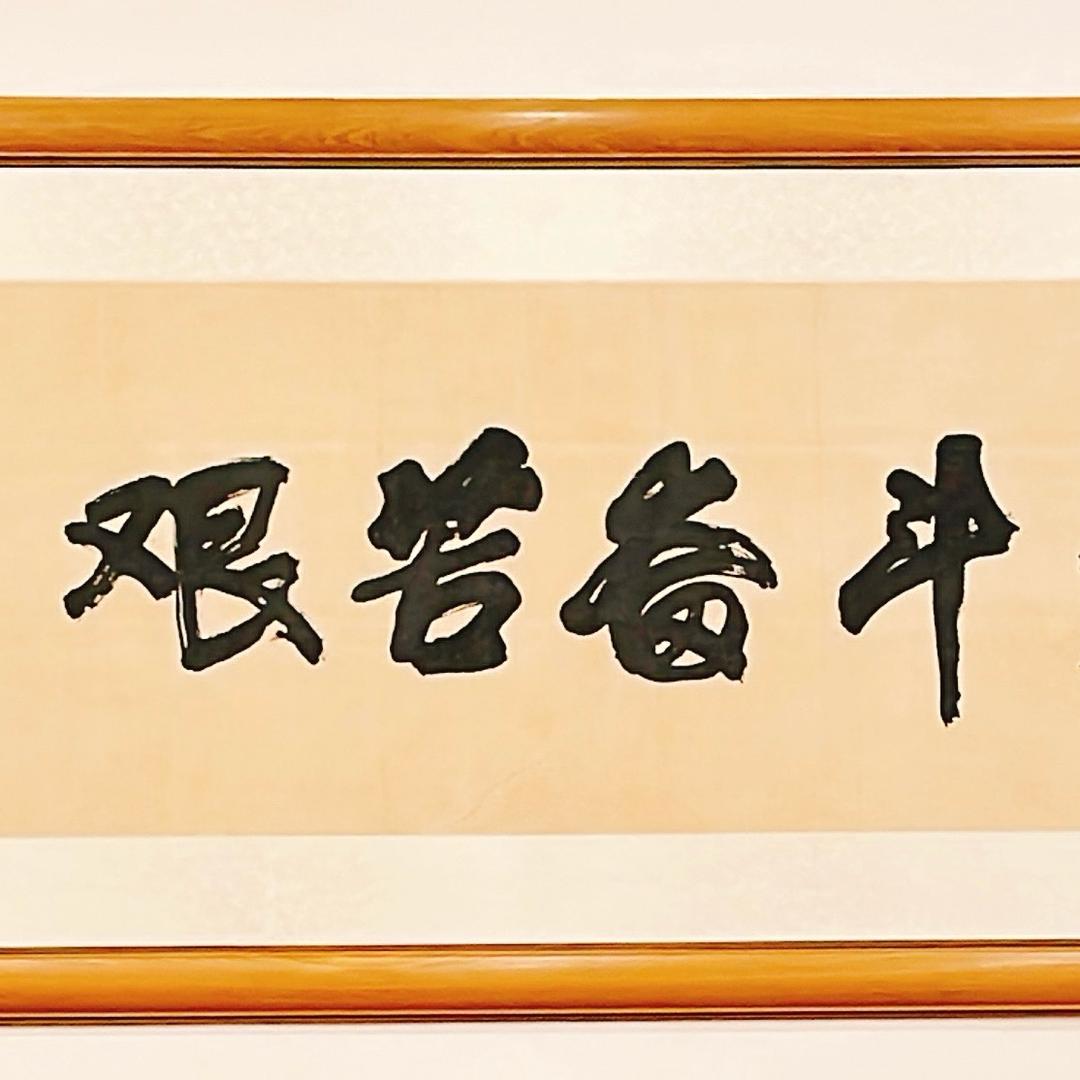 艰苦奋斗